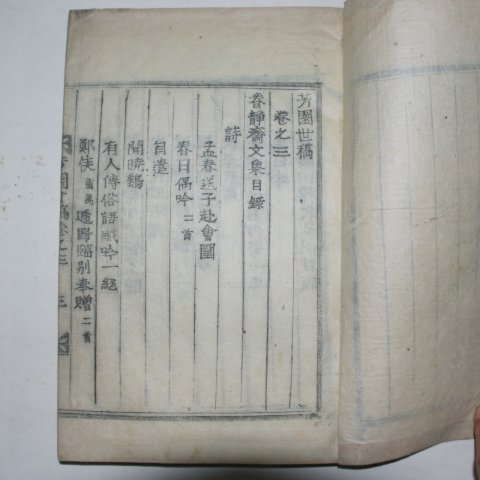 芳園世稿
卷之三
眷靜齋文集目錄
詩
孟春送子赴會圍
春日偶吟 二首
自遣
聞曉鷄
有人傳俗語感吟一絕
鄭侯 遞歸臨別奉贈 二首
芳園世稿卷之三 三